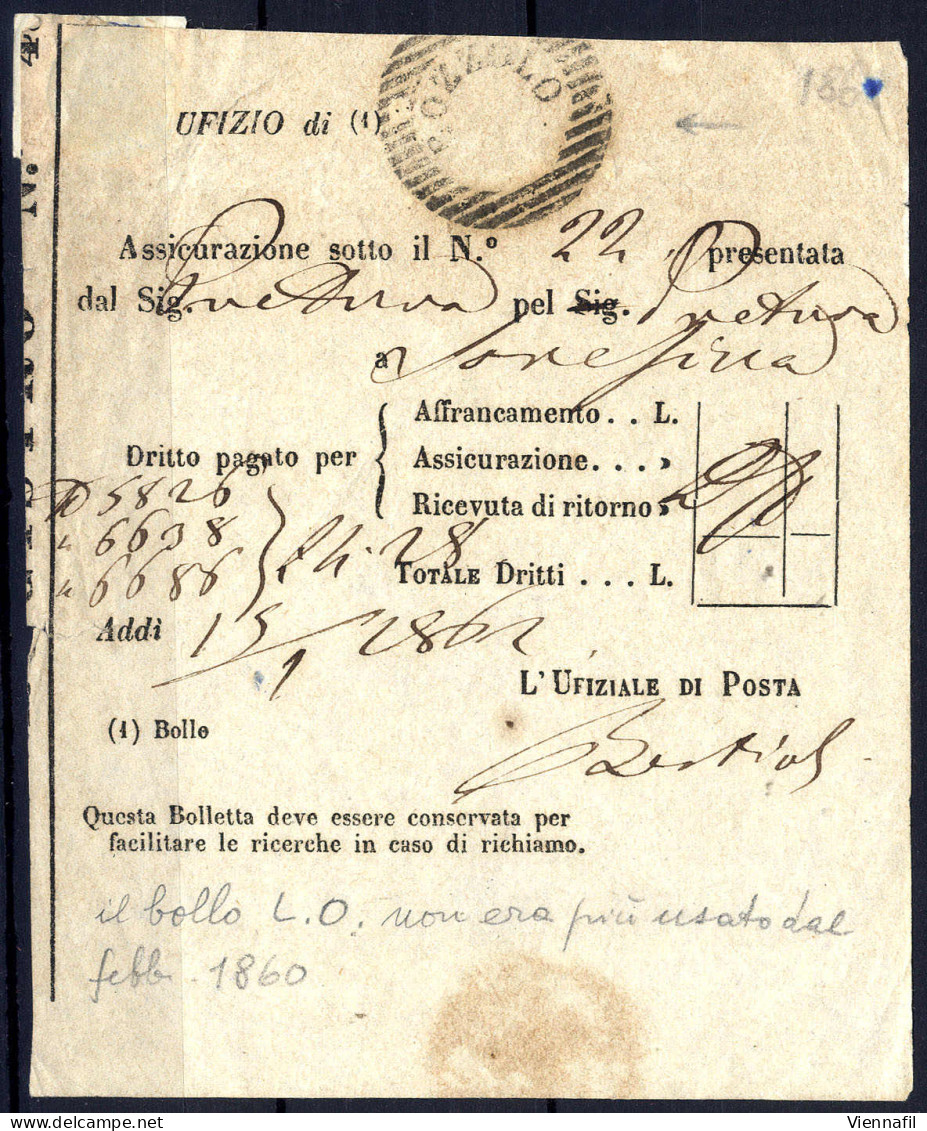 UFIZIO di (1)
POZZOLO
Assicurazione sotto il N.º 22 presentata
dal Sig. Pretura pel Sig. Pretura
a Soresina
Affrancamento . . L.
Dritto pagato per Assicurazione. . . »
Ricevuta di ritorno »
5826
" 6638
" 6686
28
TOTALE Dritti . . . L.
Addì 15/1 1862
L'UFIZIALE DI POSTA
(1) Bollo
Questa Bolletta deve essere conservata per
facilitare le ricerche in caso di richiamo.
il bollo L.O. non era più usato dal
febb. 1860
N.
Viennafil